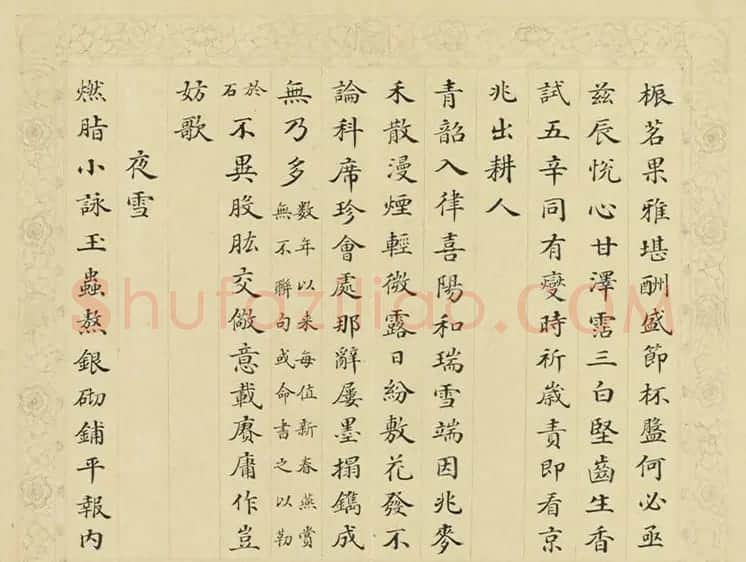 茗果雅堪酬盛節杯盤何必亟
茲辰悅心甘澤霑三白堅齒生香
試五辛同有變時祈歲責即看京
兆出耕人
青韶入律喜陽和瑞雪端因兆麥
禾散漫煙輕微露日紛敷花發不
論科席珍會處那辭屢墨搨鐫成
無乃多
数年以来每值新春燕賞
無不聯句或命書之以勒
於
石
不異股肱交儆意載賡庸作豈
妨歌
夜雪
燃脂小詠玉蟲熬銀砌鋪平報內
Shufaziliao.COM